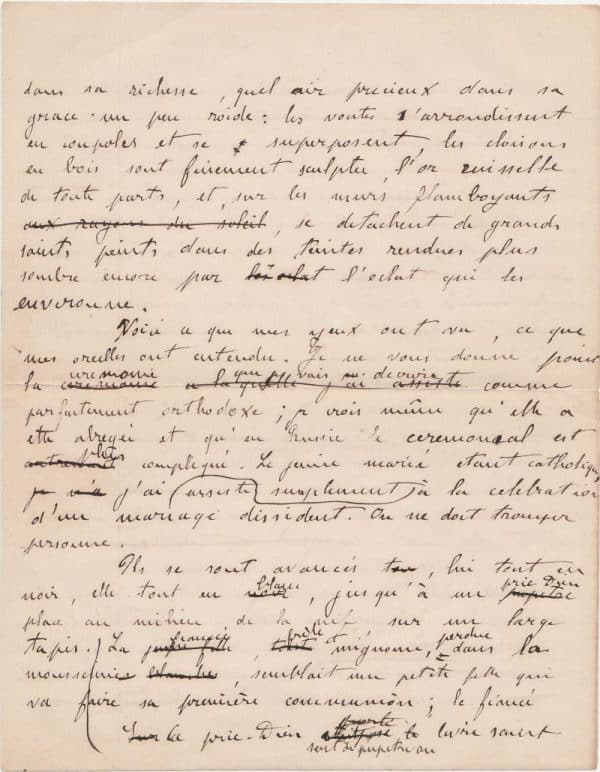 dans sa richesse, quel air precieux dans sa
grace un peu roide : les voutes s'arrondissent
en coupoles et se superposent, les cloisons
en bois sont finement sculptee, l'or ruisselle
de toute parts, et, sur les murs flamboyants
aux rayons du soleil, se detachent de grands
saints peints dans des teintes rendues plus
sombre encore par l'eclat qui les
environne.
Voici ce que mes yeux ont vu, ce que
mes oreilles ont entendu. Je ne vous donne point
ceremonie que je vais decrire
la ceremonie a laquelle j'ai assisté comme
parfaitement orthodoxe ; je crois même qu'elle a
ette abregée et qu'en Russie le ceremonial est
plus
compliqué. Le jeune marié etant catholique,
je n'a j'ai assisté simplement à la celebration
d'un mariage dissident. On ne doit tromper
personne.
Ils se sont avancés, lui tout en
blanc prie Dieu
noir, elle tout en noir, jusqu'à un pupitre
place au milieu de la nef sur un large
fiancée frêle et perdue
tapis. La jeune fille, tout mignonne, dans la
mousseline blanche, semblait un petite fille qui
va faire sa première communion ; le fiancé
Sur Le prie-Dieu le livre saint
sert de pupitre au